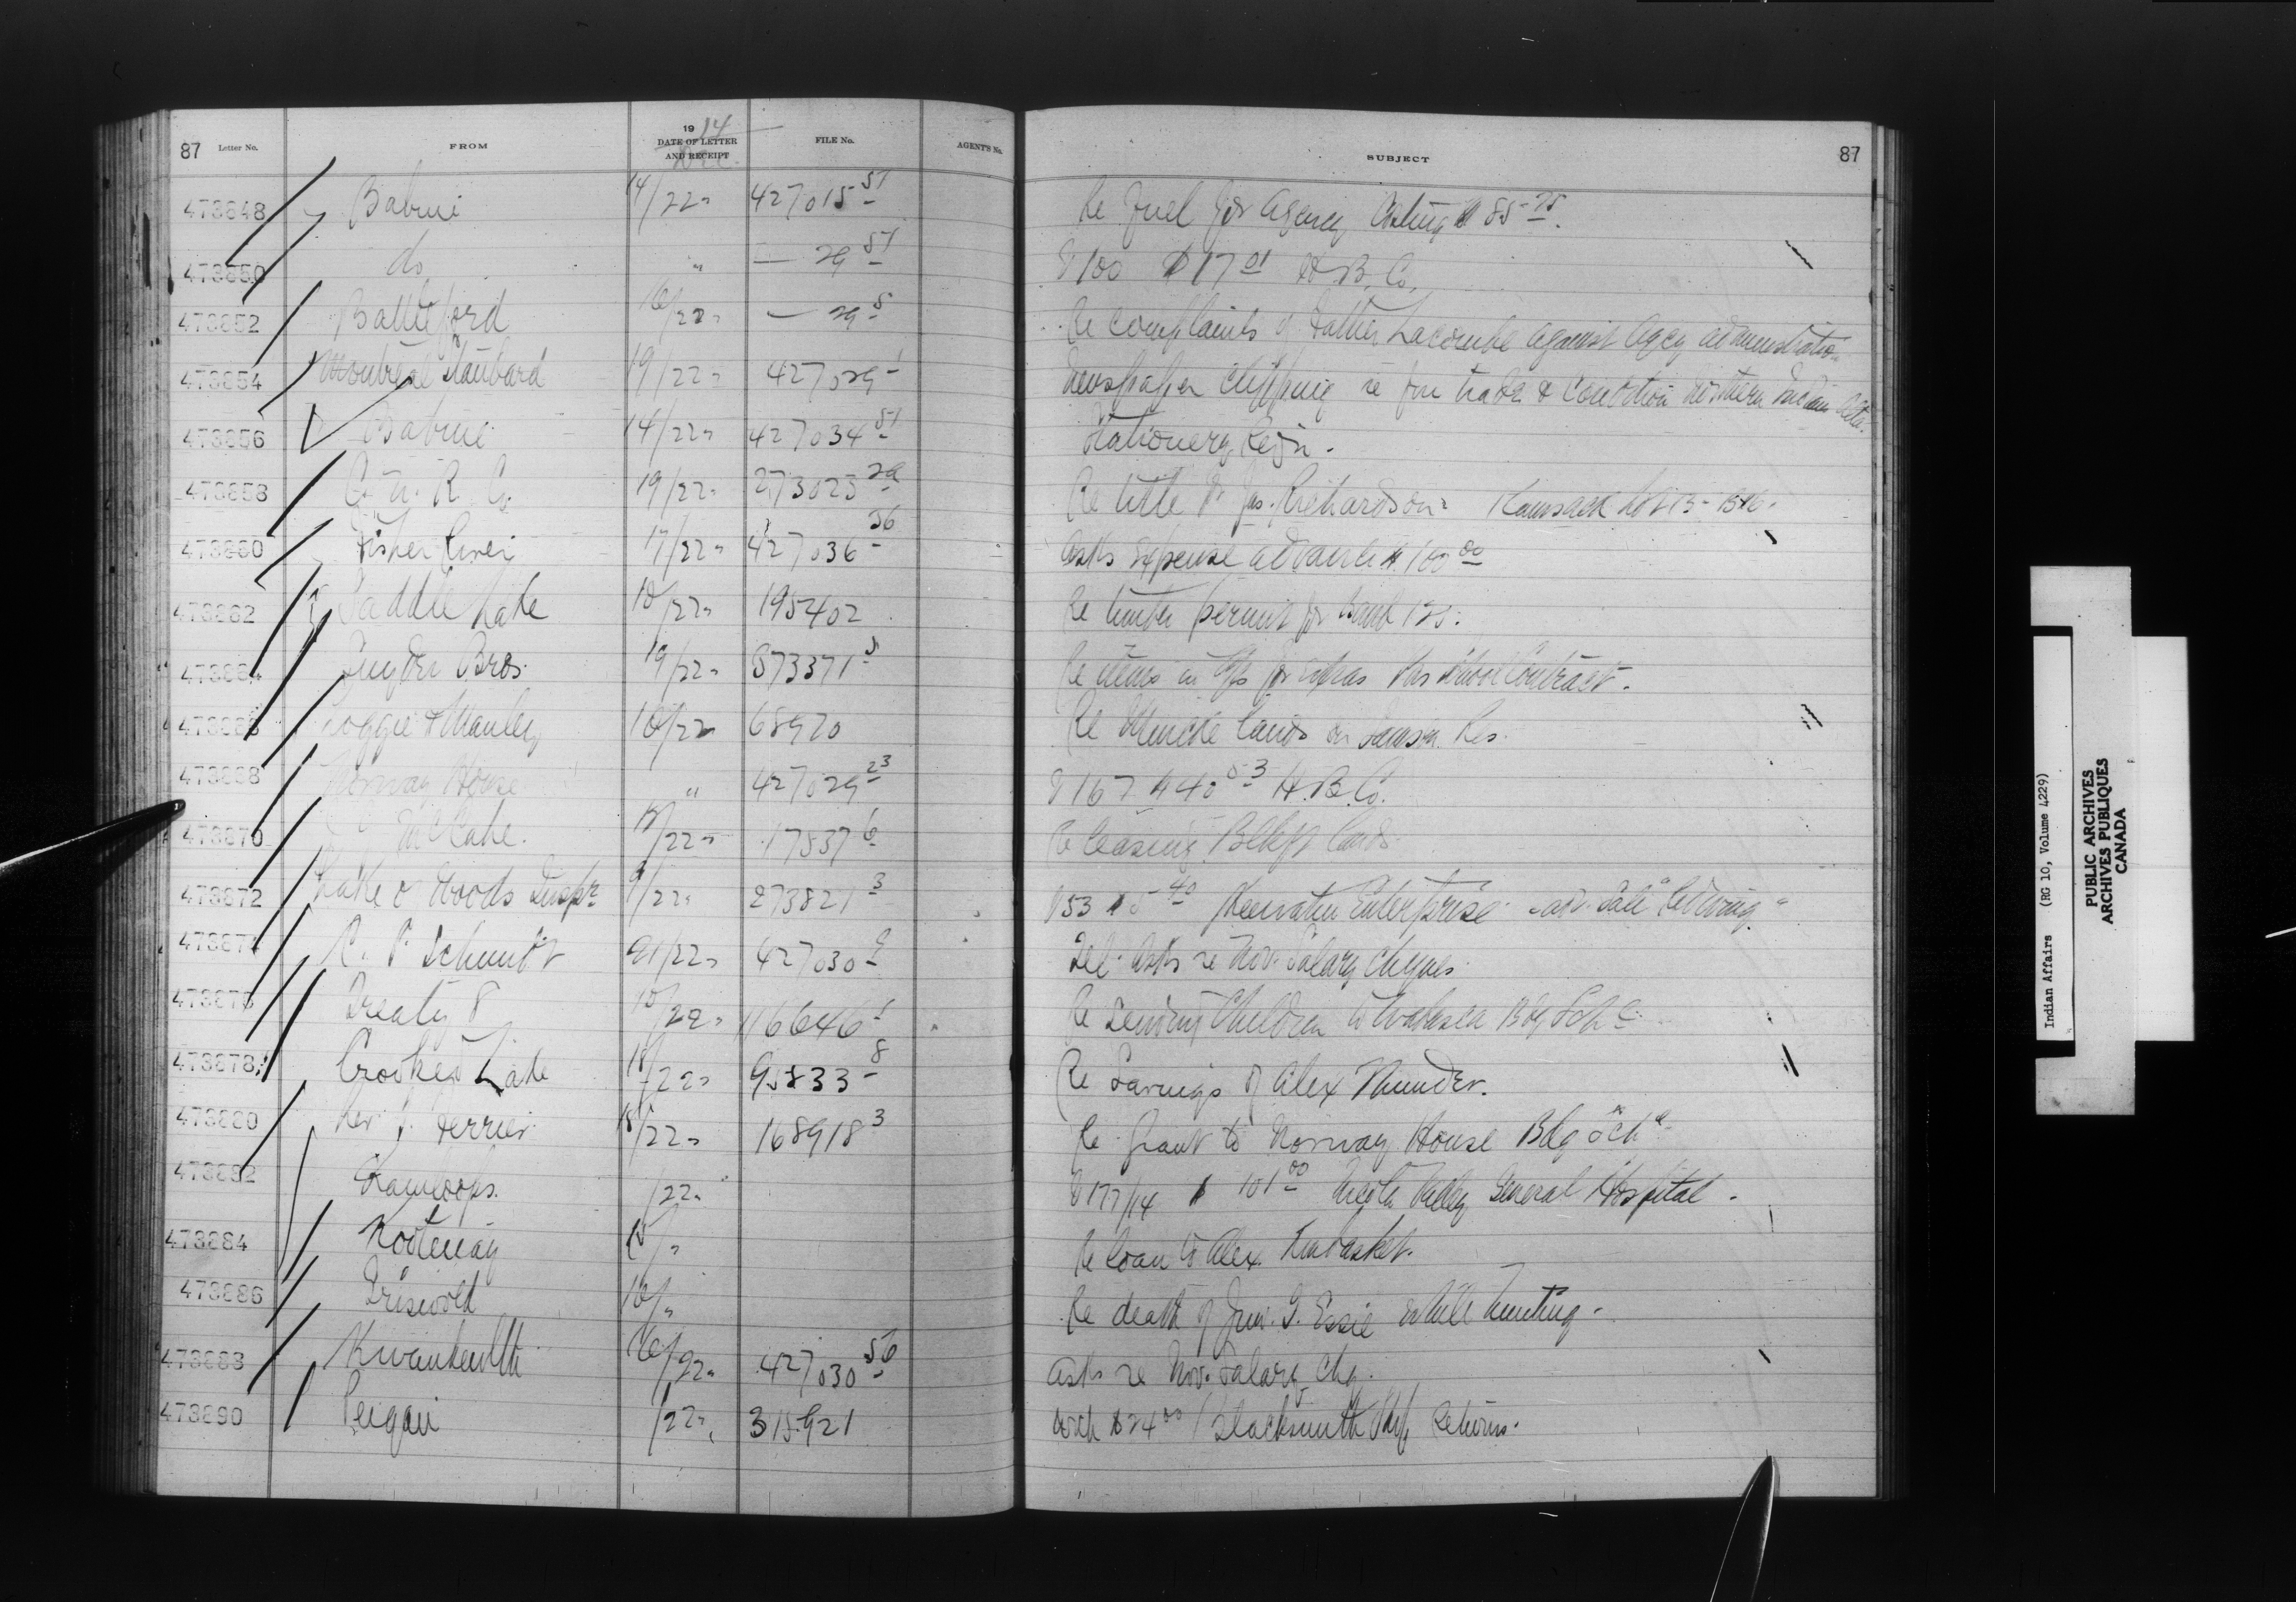 87 Letter No. FROM 1914 DATE OF LETTER AND RECEIPT Dec. FILE No. AGENT'S No. SUBJECT 87
473848 Babine 14/22 427015-51 Re fuel for Agency Costing $85.75.
473850 do " — 29-51 V 100 $17.01 H.B. Co.
473852 Battleford 16/22 — 29-5 Re complaints of Father Lacombe against Agcy administration
473854 Montreal Standard 19/22 427029-1 Newspaper clipping re fur trade & condition Northern Indians
473856 Babine 14/22 427034-51 Stationery Reqn.
473858 C. N. R. Co. 19/22 273025-29 Re title Jas. Richardson Kamsack Lot
473860 Fisher River 17/22 427036-36 Asks expense advance $100.00
473862 Saddle Lake 18/22 195402 Re timber permit for Band 125.
473864 Bros. 19/22 373371-5 Re items in a/c for extras School Contract.
473866 Loggie & Manley 18/22 68970 Re lands on Res.
473868 Norway House " 427029-23 V 167 H.B. Co.
473870 McCabe. 18/22 17537-6 Re leasing Blkft lands
473872 Lake o Woods Insptr 9/22 273821-3 V 53 $5.40 Keewatin Enterprise
473874 R. Schmidt 21/22 427030-2 Tel. Asks re Nov. Salary cheques
473876 Treaty 8 18/22 116646-1 Re sending Children to Wabasca Bdg Schl
473878 Crooked Lake 18/22 95833-8 Re Earnings of Alex Thunder.
473880 Rev. J. Ferrier 18/22 168918-3 Re Grant to Norway House Bdg Schl
473882 Kamloops. /22 V 177/14 $101.00 Nicola Valley General Hospital.
473884 Kootenay 15/" Re loan to Alex Kinbasket.
473886 Griswold 18/" Re death of G. Essie while hunting.
473888 Kwawkewlth 16/22 427030-56 Asks re Nov. Salary Chq.
473890 Peigan /22 315921 With $24.00 Blacksmith Shop Returns.
Indian Affairs (RG 10, Volume 4229)
PUBLIC ARCHIVES
ARCHIVES PUBLIQUES
CANADA